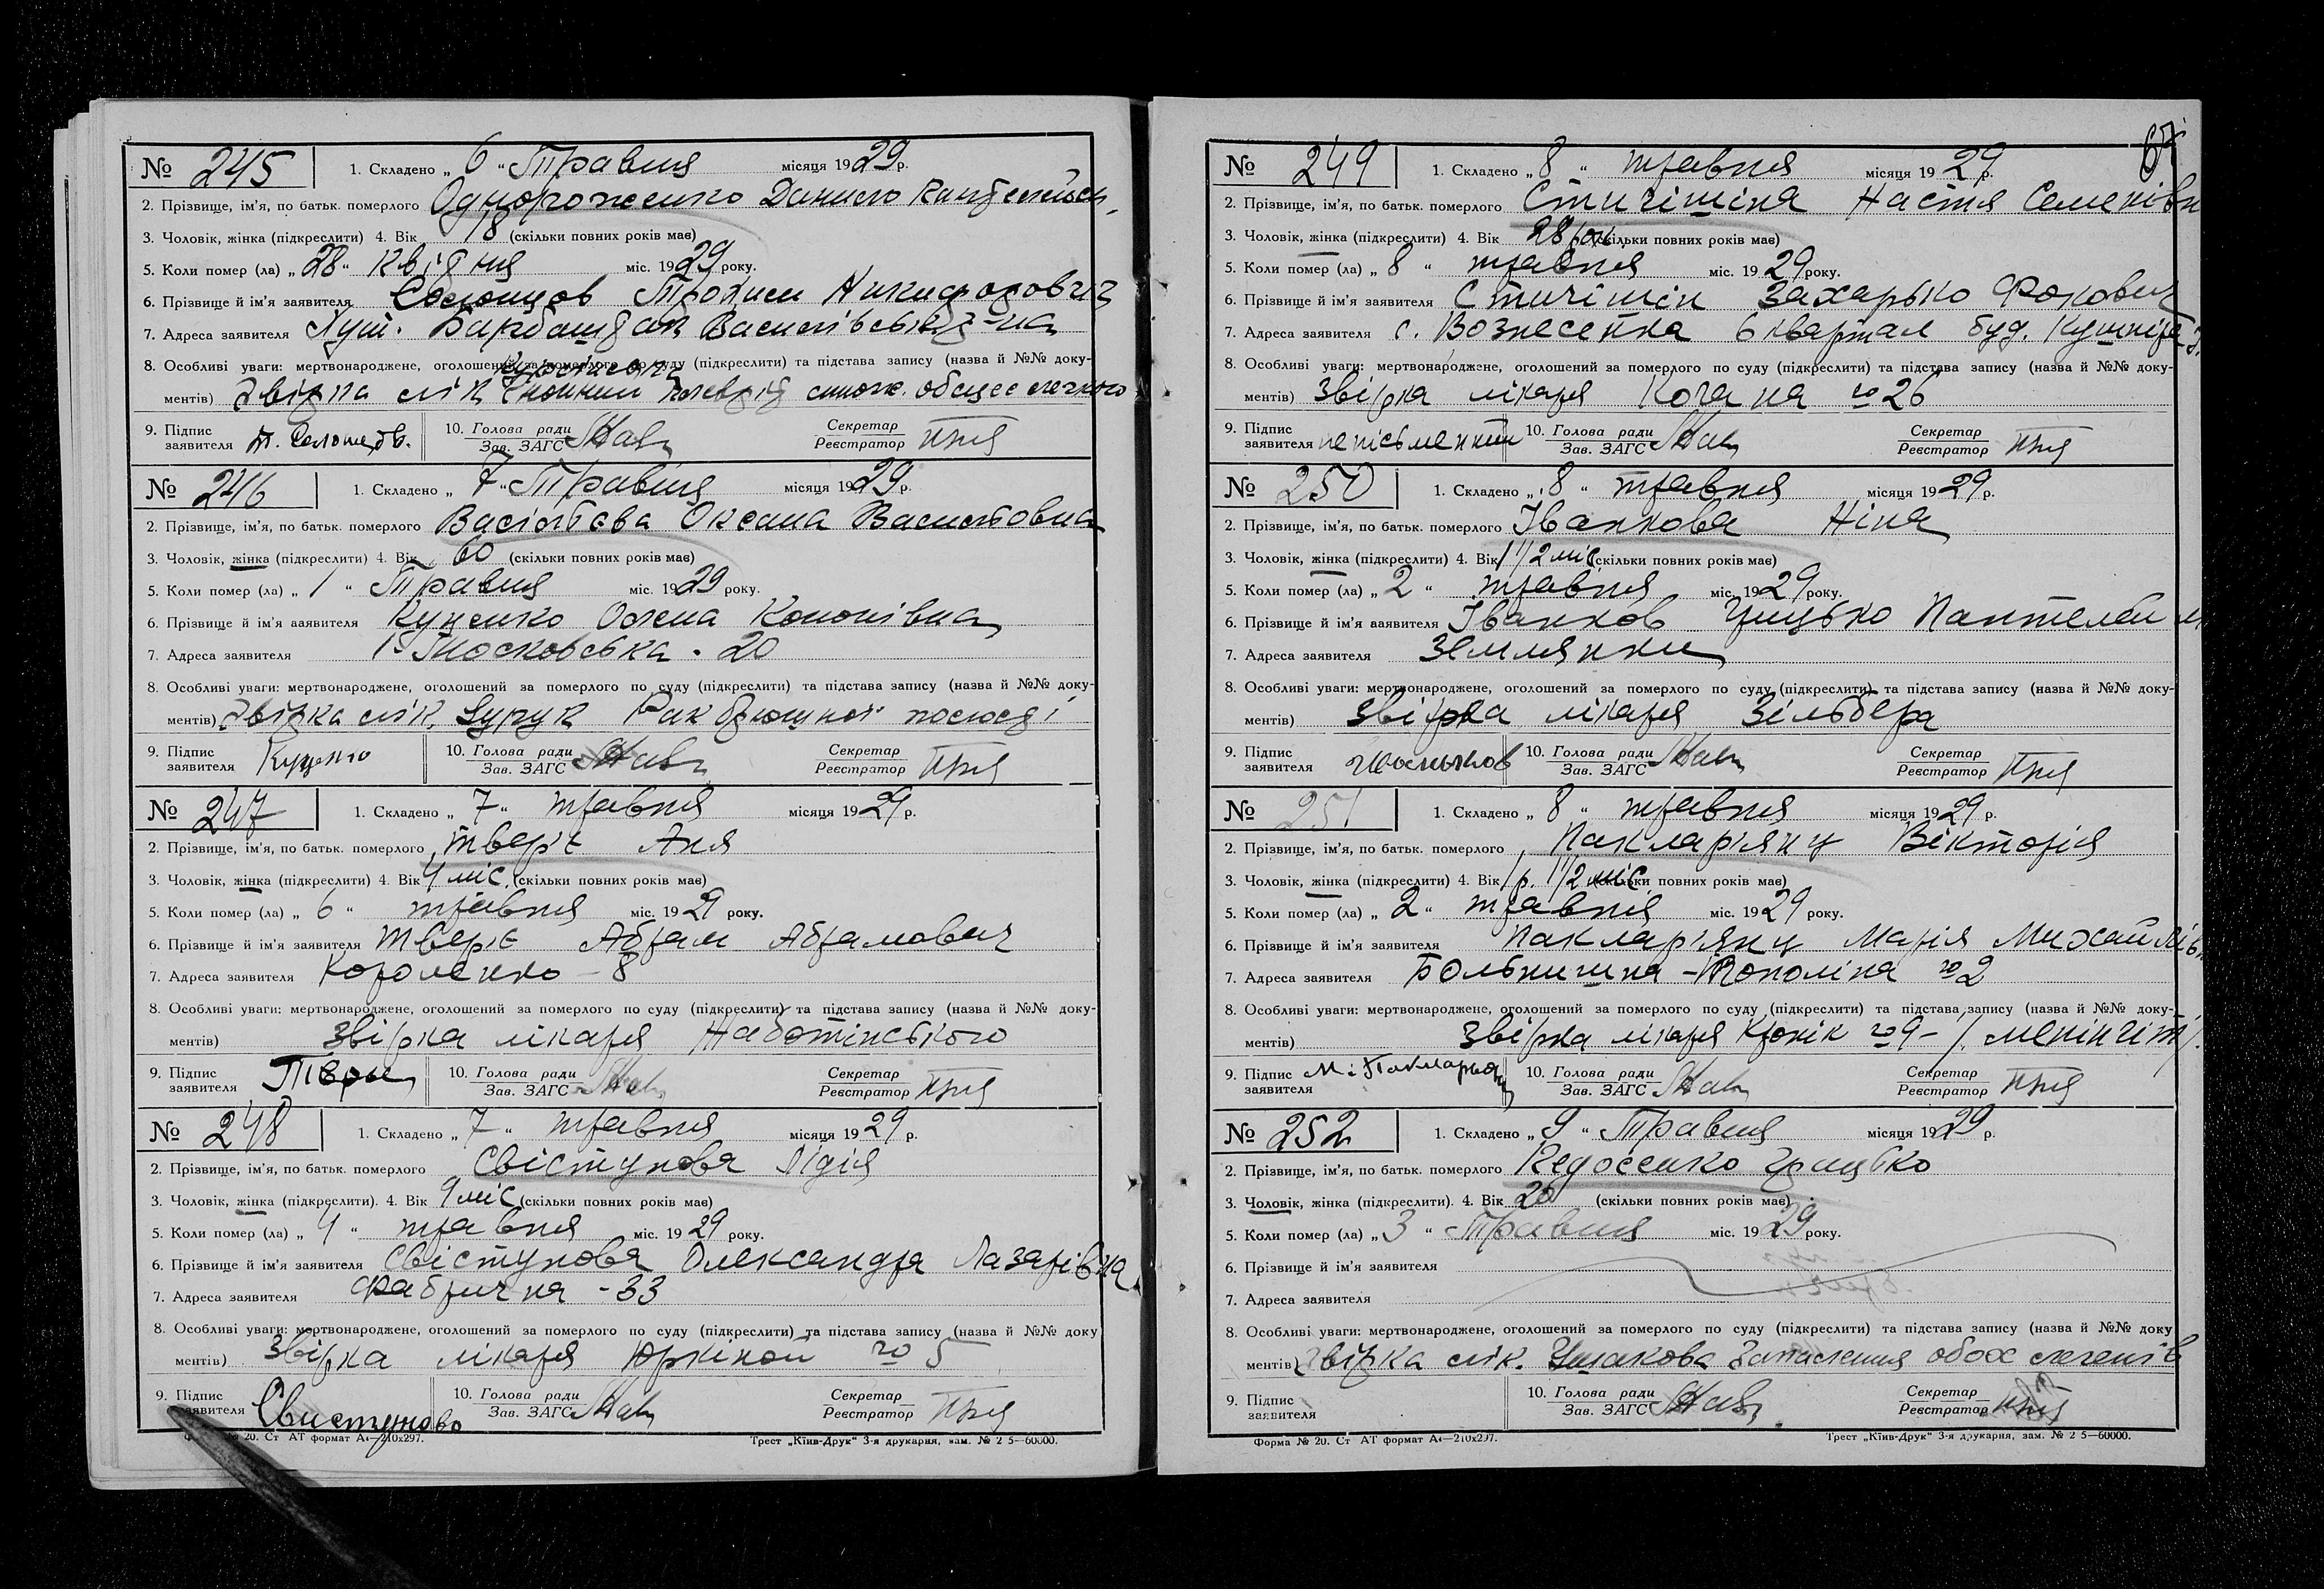 № 245 1. Складено „ 6 “ Травня місяця 1929 р.
2. Прізвище, ім'я, по батьк. померлого Однороженко Данило
3. Чоловік, жінка (підкреслити) 4. Вік 18 (скільки повних років має)
5. Коли помер (ла) „ 28 “ квідня міс. 1929 року.
6. Прізвище й ім'я заявителя Трохим Никифорович
7. Адреса заявителя
8. Особливі уваги: мертвонароджене, оголошений за померлого по суду (підкреслити) та підстава запису (назва й №№ доку-
ментів) Звірка лік
9. Підпис заявителя 10. Голова ради Зав. ЗАГС Секретар Реєстратор
№ 246 1. Складено „ 7 “ Травня місяця 1929 р.
2. Прізвище, ім'я, по батьк. померлого Васільєва Оксана Васильовна
3. Чоловік, жінка (підкреслити) 4. Вік 60 (скільки повних років має)
5. Коли помер (ла) „ 1 “ Травня міс. 1929 року.
6. Прізвище й ім'я заявителя Куценко Олена Кононівна
7. Адреса заявителя Московська · 20
8. Особливі уваги: мертвонароджене, оголошений за померлого по суду (підкреслити) та підстава запису (назва й №№ доку-
ментів) Звірка лік. Цурук Рак брюшної
9. Підпис заявителя Куценко 10. Голова ради Зав. ЗАГС Секретар Реєстратор
№ 247 1. Складено „ 7 “ травня місяця 1929 р.
2. Прізвище, ім'я, по батьк. померлого Твер'є Аня
3. Чоловік, жінка (підкреслити) 4. Вік 4 міс. (скільки повних років має)
5. Коли помер (ла) „ 6 “ травня міс. 1929 року.
6. Прізвище й ім'я заявителя Твер'є Абрам Абрамович
7. Адреса заявителя Короленко – 8
8. Особливі уваги: мертвонароджене, оголошений за померлого по суду (підкреслити) та підстава запису (назва й №№ доку-
ментів) Звірка лікаря Жаботінського
9. Підпис заявителя 10. Голова ради Зав. ЗАГС Секретар Реєстратор
№ 248 1. Складено „ 7 “ травня місяця 1929 р.
2. Прізвище, ім'я, по батьк. померлого Свістунова Лідія
3. Чоловік, жінка (підкреслити). 4. Вік 9 міс (скільки повних років має)
5. Коли помер (ла) „ 4 “ травня міс. 1929 року.
6. Прізвище й ім'я заявителя Свістунова Олександра Лазарівна
7. Адреса заявителя Фабрична – 33
8. Особливі уваги: мертвонароджене, оголошений за померлого по суду (підкреслити) та підстава запису (назва й №№ доку
ментів) Звірка лікаря Юркіной № 5
9. Підпис заявителя Свистуново 10. Голова ради Зав. ЗАГС Секретар Реєстратор
№ 20. Ст АТ формат А4—210х297. Трест „Київ-Друк“ 3-я друкарня, зам. № 2 5—60000.
67
№ 249 1. Складено „ 8 “ травня місяця 1929 р.
2. Прізвище, ім'я, по батьк. померлого Стичішіна Настя Семенівн
3. Чоловік, жінка (підкреслити) 4. Вік 28 рок. (скільки повних років має)
5. Коли помер (ла) „ 8 “ травня міс. 1929 року.
6. Прізвище й ім'я заявителя Стичішін Захарько Фокович
7. Адреса заявителя с. Вознесенка 6 квартал буд. Кушніра
8. Особливі уваги: мертвонароджене, оголошений за померлого по суду (підкреслити) та підстава запису (назва й №№ доку-
ментів) Звірка лікаря Когана № 26
9. Підпис заявителя непісьменний 10. Голова ради Зав. ЗАГС Секретар Реєстратор
№ 250 1. Складено „ 8 “ травня місяця 1929 р.
2. Прізвище, ім'я, по батьк. померлого Іванкова Ніна
3. Чоловік, жінка (підкреслити) 4. Вік 1 1/2 міс (скільки повних років має)
5. Коли помер (ла) „ 2 “ травня міс. 1929 року.
6. Прізвище й ім'я заявителя Іванков Грицько
7. Адреса заявителя Землянки
8. Особливі уваги: мертвонароджене, оголошений за померлого по суду (підкреслити) та підстава запису (назва й №№ доку-
ментів) Звірка лікаря Зільбера
9. Підпис заявителя 10. Голова ради Зав. ЗАГС Секретар Реєстратор
№ 251 1. Складено „ 8 “ травня місяця 1929 р.
2. Прізвище, ім'я, по батьк. померлого Паклар'янц Вікторія
3. Чоловік, жінка (підкреслити) 4. Вік 1 р. 1 1/2 міс (скільки повних років має)
5. Коли помер (ла) „ 2 “ травня міс. 1929 року.
6. Прізвище й ім'я заявителя Паклар'янц Марія Михайлівн
7. Адреса заявителя Больнишна – Тополіна № 2
8. Особливі уваги: мертвонароджене, оголошений за померлого по суду (підкреслити) та підстава запису (назва й №№ доку-
ментів) Звірка лікаря Кронік № 9 – /. менінгіт/.
9. Підпис заявителя 10. Голова ради Зав. ЗАГС Секретар Реєстратор
№ 252 1. Складено „ 9 “ Травня місяця 1929 р.
2. Прізвище, ім'я, по батьк. померлого Федосенко Грицько
3. Чоловік, жінка (підкреслити). 4. Вік 20 (скільки повних років має)
5. Коли помер (ла) „ 3 “ Травня міс. 1929 року.
6. Прізвище й ім'я заявителя
7. Адреса заявителя
8. Особливі уваги: мертвонароджене, оголошений за померлого по суду (підкреслити) та підстава запису (назва й №№ доку
ментів) Звірка лік. Ушакова Запалення обох легенів
9. Підпис заявителя 10. Голова ради Зав. ЗАГС Секретар Реєстратор
Форма № 20. Ст АТ формат А4—210х297. Трест „Київ-Друк“ 3-я друкарня, зам. № 2 5—60000.